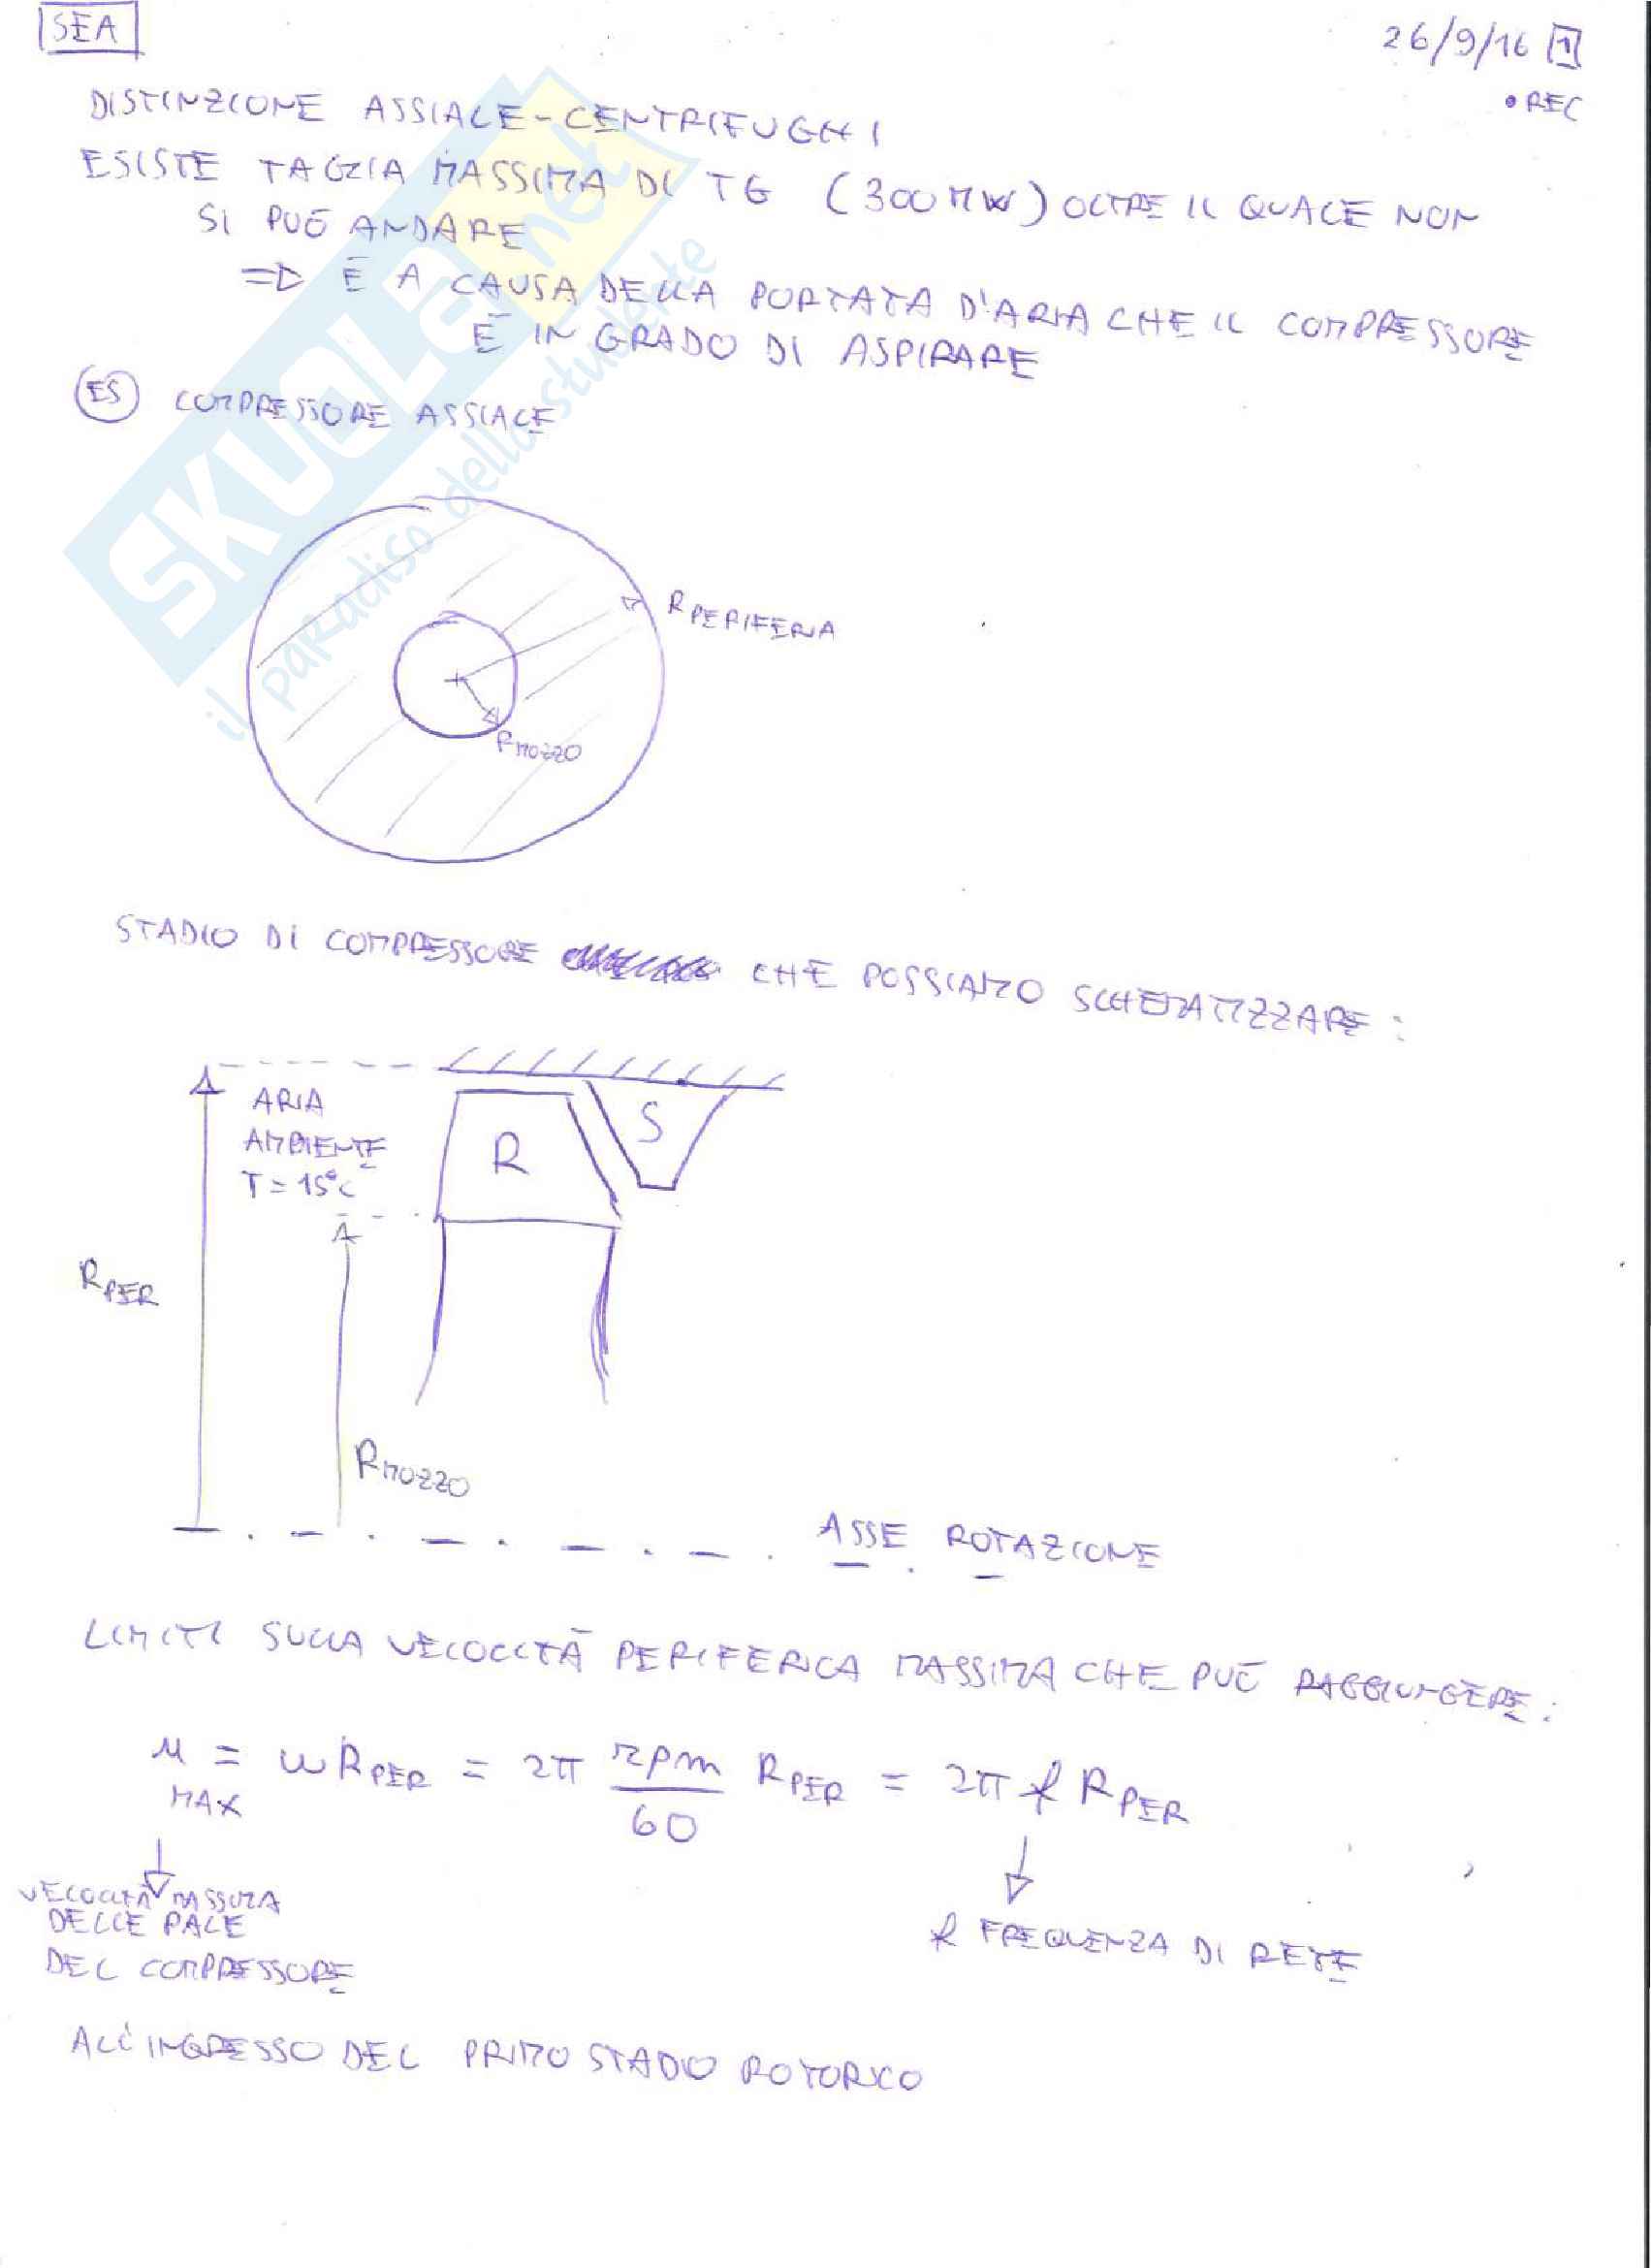 SEA
26/9/16 1
• REC
DISTINZIONE ASSIALE-CENTRIFUGHI
ESISTE TAGLIA MASSIMA DI TG (300 MW) OLTRE IL QUALE NON
SI PUÒ ANDARE
=> È A CAUSA DELLA PORTATA D'ARIA CHE IL COMPRESSORE
È IN GRADO DI ASPIRARE
ES COMPRESSORE ASSIALE
R PERIFERIA
R MOZZO
STADIO DI COMPRESSORE CHE POSSIAMO SCHEMATIZZARE:
ARIA
AMBIENTE
T = 15°C
R
S
R PER
R MOZZO
ASSE ROTAZIONE
LIMITI SULLA VELOCITÀ PERIFERICA MASSIMA CHE PUÒ RAGGIUNGERE:
u MAX = ω R PER = 2π rpm/60 R PER = 2π f R PER
VELOCITÀ MASSIMA
DELLE PALE
DEL COMPRESSORE
f FREQUENZA DI RETE
ALL'INGRESSO DEL PRIMO STADIO ROTORICO
SKUOLA.net
il paradiso dello studente